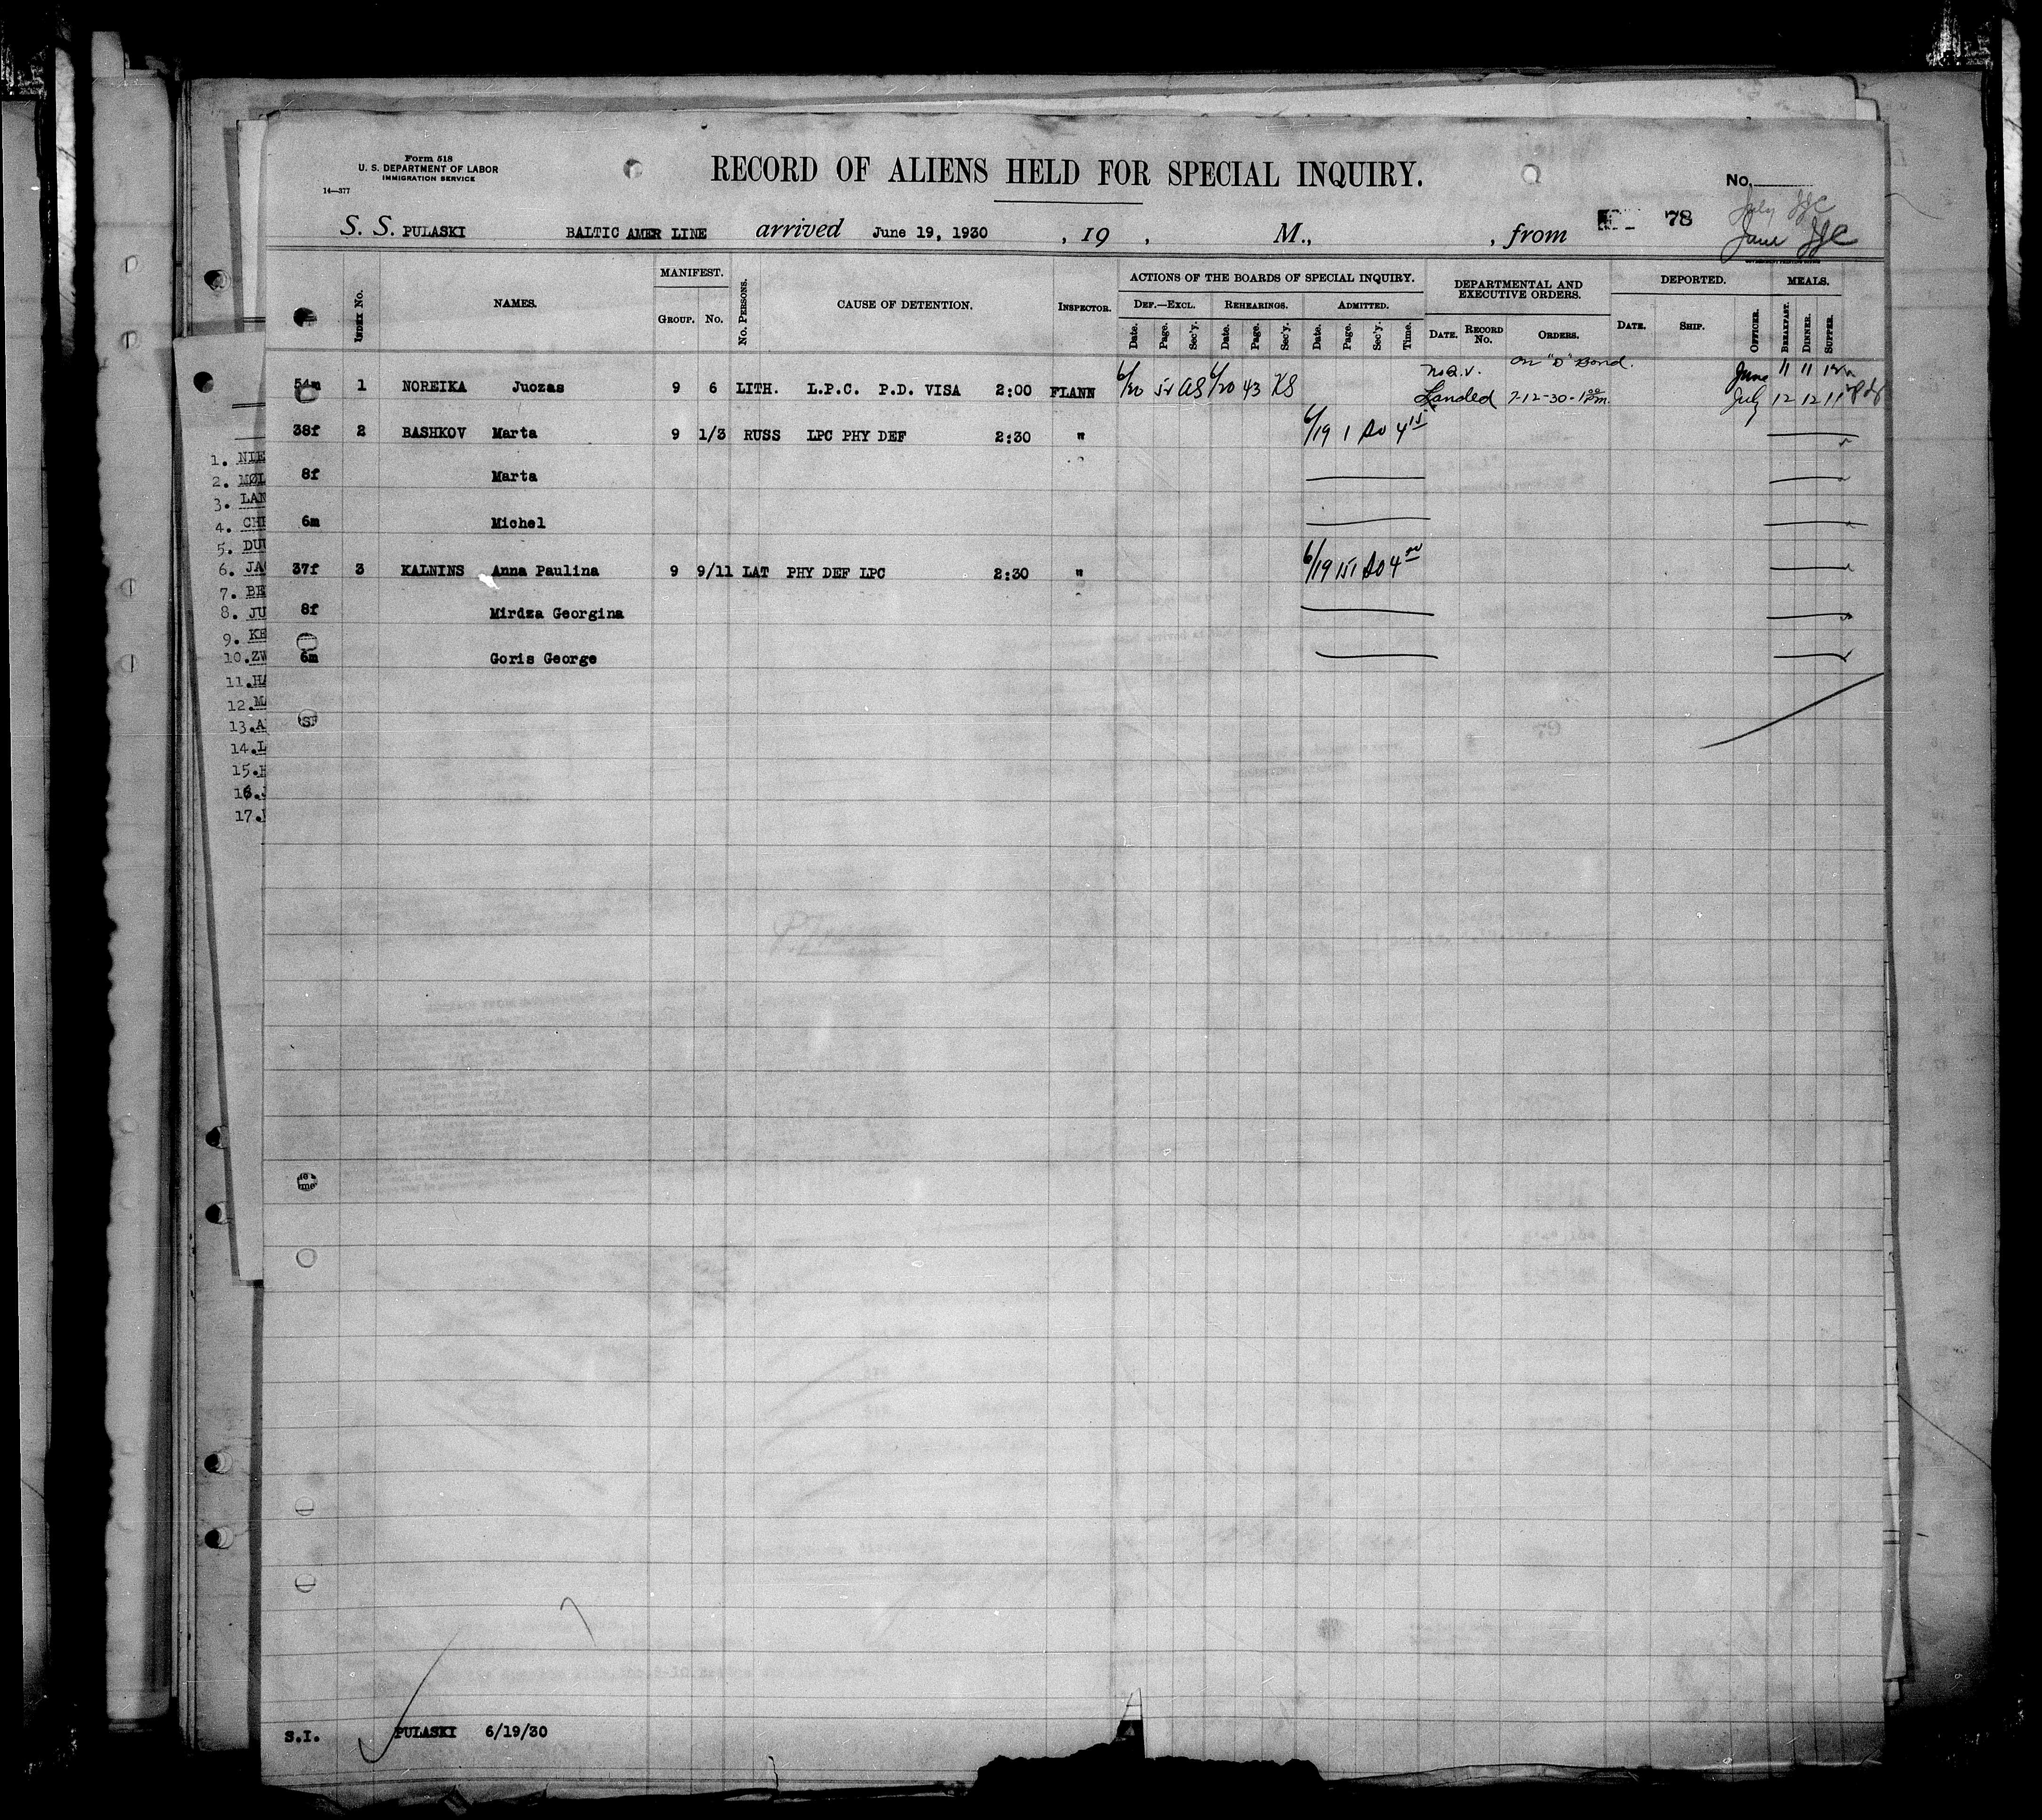 Form 518
U. S. DEPARTMENT OF LABOR
IMMIGRATION SERVICE
14—377
RECORD OF ALIENS HELD FOR SPECIAL INQUIRY.
No.
July JJC
S. S. PULASKI BALTIC AMER LINE arrived June 19, 1930 , 19 , M., , from 78 June JJC
INDEX No. NAMES. MANIFEST. GROUP. No. No. PERSONS. CAUSE OF DETENTION. INSPECTOR.
ACTIONS OF THE BOARDS OF SPECIAL INQUIRY.
DEF.—EXCL. REHEARINGS. ADMITTED.
Date. Page. Sec'y. Date. Page. Sec'y. Date. Page. Sec'y. Time.
DEPARTMENTAL AND EXECUTIVE ORDERS.
DATE. RECORD No. ORDERS.
DEPORTED.
DATE. SHIP. OFFICER.
MEALS.
BREAKFAST. DINNER. SUPPER.
on "D" Bond.
54m 1 NOREIKA Juozas 9 6 LITH. L.P.C. P.D. VISA 2:00 FLANN 6/20 AS 6/20 43 KS June 11 11
Landed 7-12-30- July 12 12 11
38f 2 BASHKOV Marta 9 1/3 RUSS LPC PHY DEF 2:30 " 6/19 1 4 15
8f Marta
6m Michel
37f 3 KALNINS Anna Paulina 9 9/11 LAT PHY DEF LPC 2:30 " 6/19 151 4 00
8f Mirdza Georgina
6m Goris George
1. NIE
2. MØL
3. LAN
4. CHR
5. DUU
6. JA
7. BE
8. JU
9. KE
10. ZW
11. HA
12. MA
13. A
14. L
15.
16.
17.
S.I. PULASKI 6/19/30